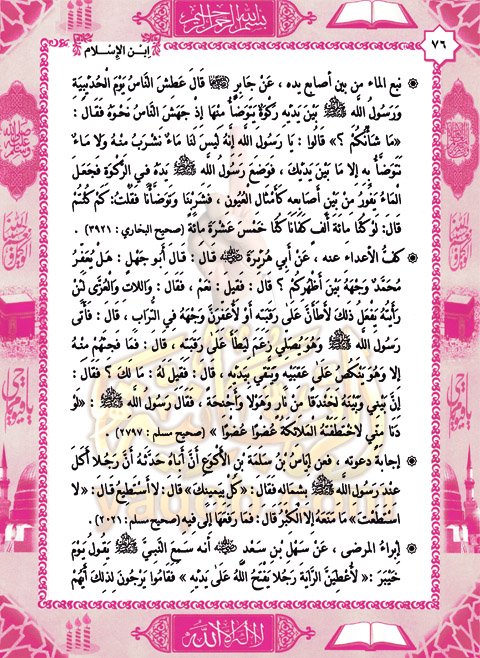 بسم الله الرحمن الرحيم
ابن الإسلام
٧٦
نبع الماء من بين أصابع يده ، عَنْ جَابِرٍ ﷺ قَالَ عَطِشَ النَّاسُ يَوْمَ الْحُدَيْبِيَةِ
وَرَسُولُ اللَّهِ ﷺ بَيْنَ يَدَيْهِ رَكْوَةٌ يَتَوَضَّأُ مِنْهَا إِذْ جَهَشَ النَّاسُ نَحْوَهُ فَقَالَ :
«مَا شَأْنُكُمْ ؟» قَالُوا : يَا رَسُولَ اللَّهِ إِنَّهُ لَيْسَ لَنَا مَاءٌ نَشْرَبُ مِنْهُ وَلَا مَاءٌ
نَتَوَضَّأُ بِهِ إِلَّا مَا بَيْنَ يَدَيْكَ ، فَوَضَعَ رَسُولُ اللَّهِ ﷺ يَدَهُ فِي الرَّكْوَةِ فَجَعَلَ
الْمَاءُ يَفُورُ مِنْ بَيْنِ أَصَابِعِهِ كَأَمْثَالِ الْعُيُونِ ، فَشَرِبْنَا وَتَوَضَّأْنَا فَقُلْتُ: كَمْ كُنْتُمْ
قَالَ: لَوْ كُنَّا مِائَةَ أَلْفٍ لَكَفَانَا كُنَّا خَمْسَ عَشْرَةَ مِائَةً (صحيح البخاري : ٣٩٢١) .
كفُّ الأعداء عنه ، عَنْ أَبِي هُرَيْرَةَ قَالَ : قَالَ أَبُو جَهْلٍ : هَلْ يُعَفِّرُ
مُحَمَّدٌ وَجْهَهُ بَيْنَ أَظْهُرِكُمْ ؟ قَالَ : فَقِيلَ : نَعَمْ ، فَقَالَ : وَاللَّاتِ وَالْعُزَّى لَئِنْ
رَأَيْتُهُ يَفْعَلُ ذَلِكَ لَأَطَأَنَّ عَلَى رَقَبَتِهِ أَوْ لَأُعَفِّرَنَّ وَجْهَهُ فِي التُّرَابِ ، قَالَ : فَأَتَى
رَسُولَ اللَّهِ ﷺ وَهُوَ يُصَلِّي زَعَمَ لِيَطَأَ عَلَى رَقَبَتِهِ ، قَالَ : فَمَا فَجِئَهُمْ مِنْهُ
إِلَّا وَهُوَ يَنْكُصُ عَلَى عَقِبَيْهِ وَيَتَّقِي بِيَدَيْهِ ، قَالَ : فَقِيلَ لَهُ : مَا لَكَ ؟ فَقَالَ :
إِنَّ بَيْنِي وَبَيْنَهُ لَخَنْدَقًا مِنْ نَارٍ وَهَوْلًا وَأَجْنِحَةً ، فَقَالَ رَسُولُ اللَّهِ ﷺ : «لَوْ
دَنَا مِنِّي لَاخْتَطَفَتْهُ الْمَلَائِكَةُ عُضْوًا عُضْوًا » (صحيح مسلم : ٢٧٩٧) .
إجابة دعوته ، فعن إِيَاسُ بْنُ سَلَمَةَ بْنِ الْأَكْوَعِ أَنَّ أَبَاهُ حَدَّثَهُ أَنَّ رَجُلًا أَكَلَ
عِنْدَ رَسُولِ اللَّهِ ﷺ بِشِمَالِهِ فَقَالَ: «كُلْ بِيَمِينِكَ» قَالَ : لَا أَسْتَطِيعُ قَالَ: «لَا
اسْتَطَعْتَ» مَا مَنَعَهُ إِلَّا الْكِبْرُ قَالَ : فَمَا رَفَعَهَا إِلَى فِيهِ (صحيح مسلم : ٢٠٢١) .
إبراء المرضى ، عَنْ سَهْلِ بْنِ سَعْدٍ أنه سَمِعَ النَّبِيَّ ﷺ يَقُولُ يَوْمَ
خَيْبَرَ :« لَأُعْطِيَنَّ الرَّايَةَ رَجُلًا يَفْتَحُ اللَّهُ عَلَى يَدَيْهِ » فَقَامُوا يَرْجُونَ لِذَلِكَ أَيُّهُمْ
لا إله إلا الله